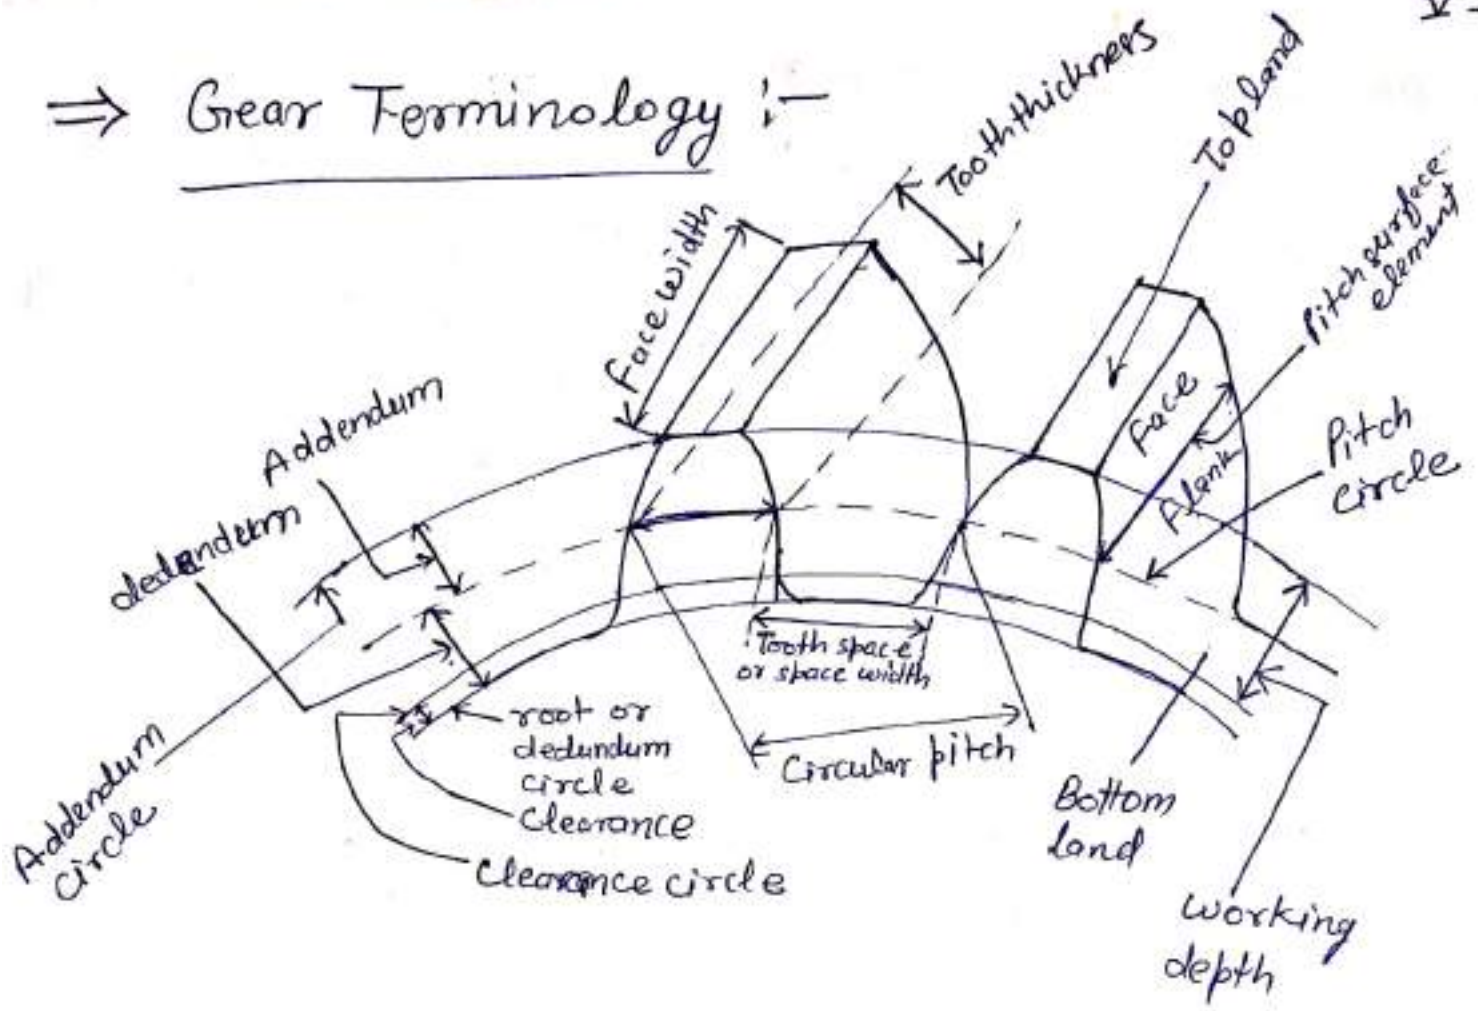 ⇒ Gear Terminology :-
Tooth thickness
Top land
Pitch surface
element
Face width
Addendum
dedendum
Face
Flank
Pitch
circle
Tooth space
or space width
root or
dedundum
circle
Circular pitch
Clearance
Clearance circle
Addendum
circle
Bottom
land
working
depth